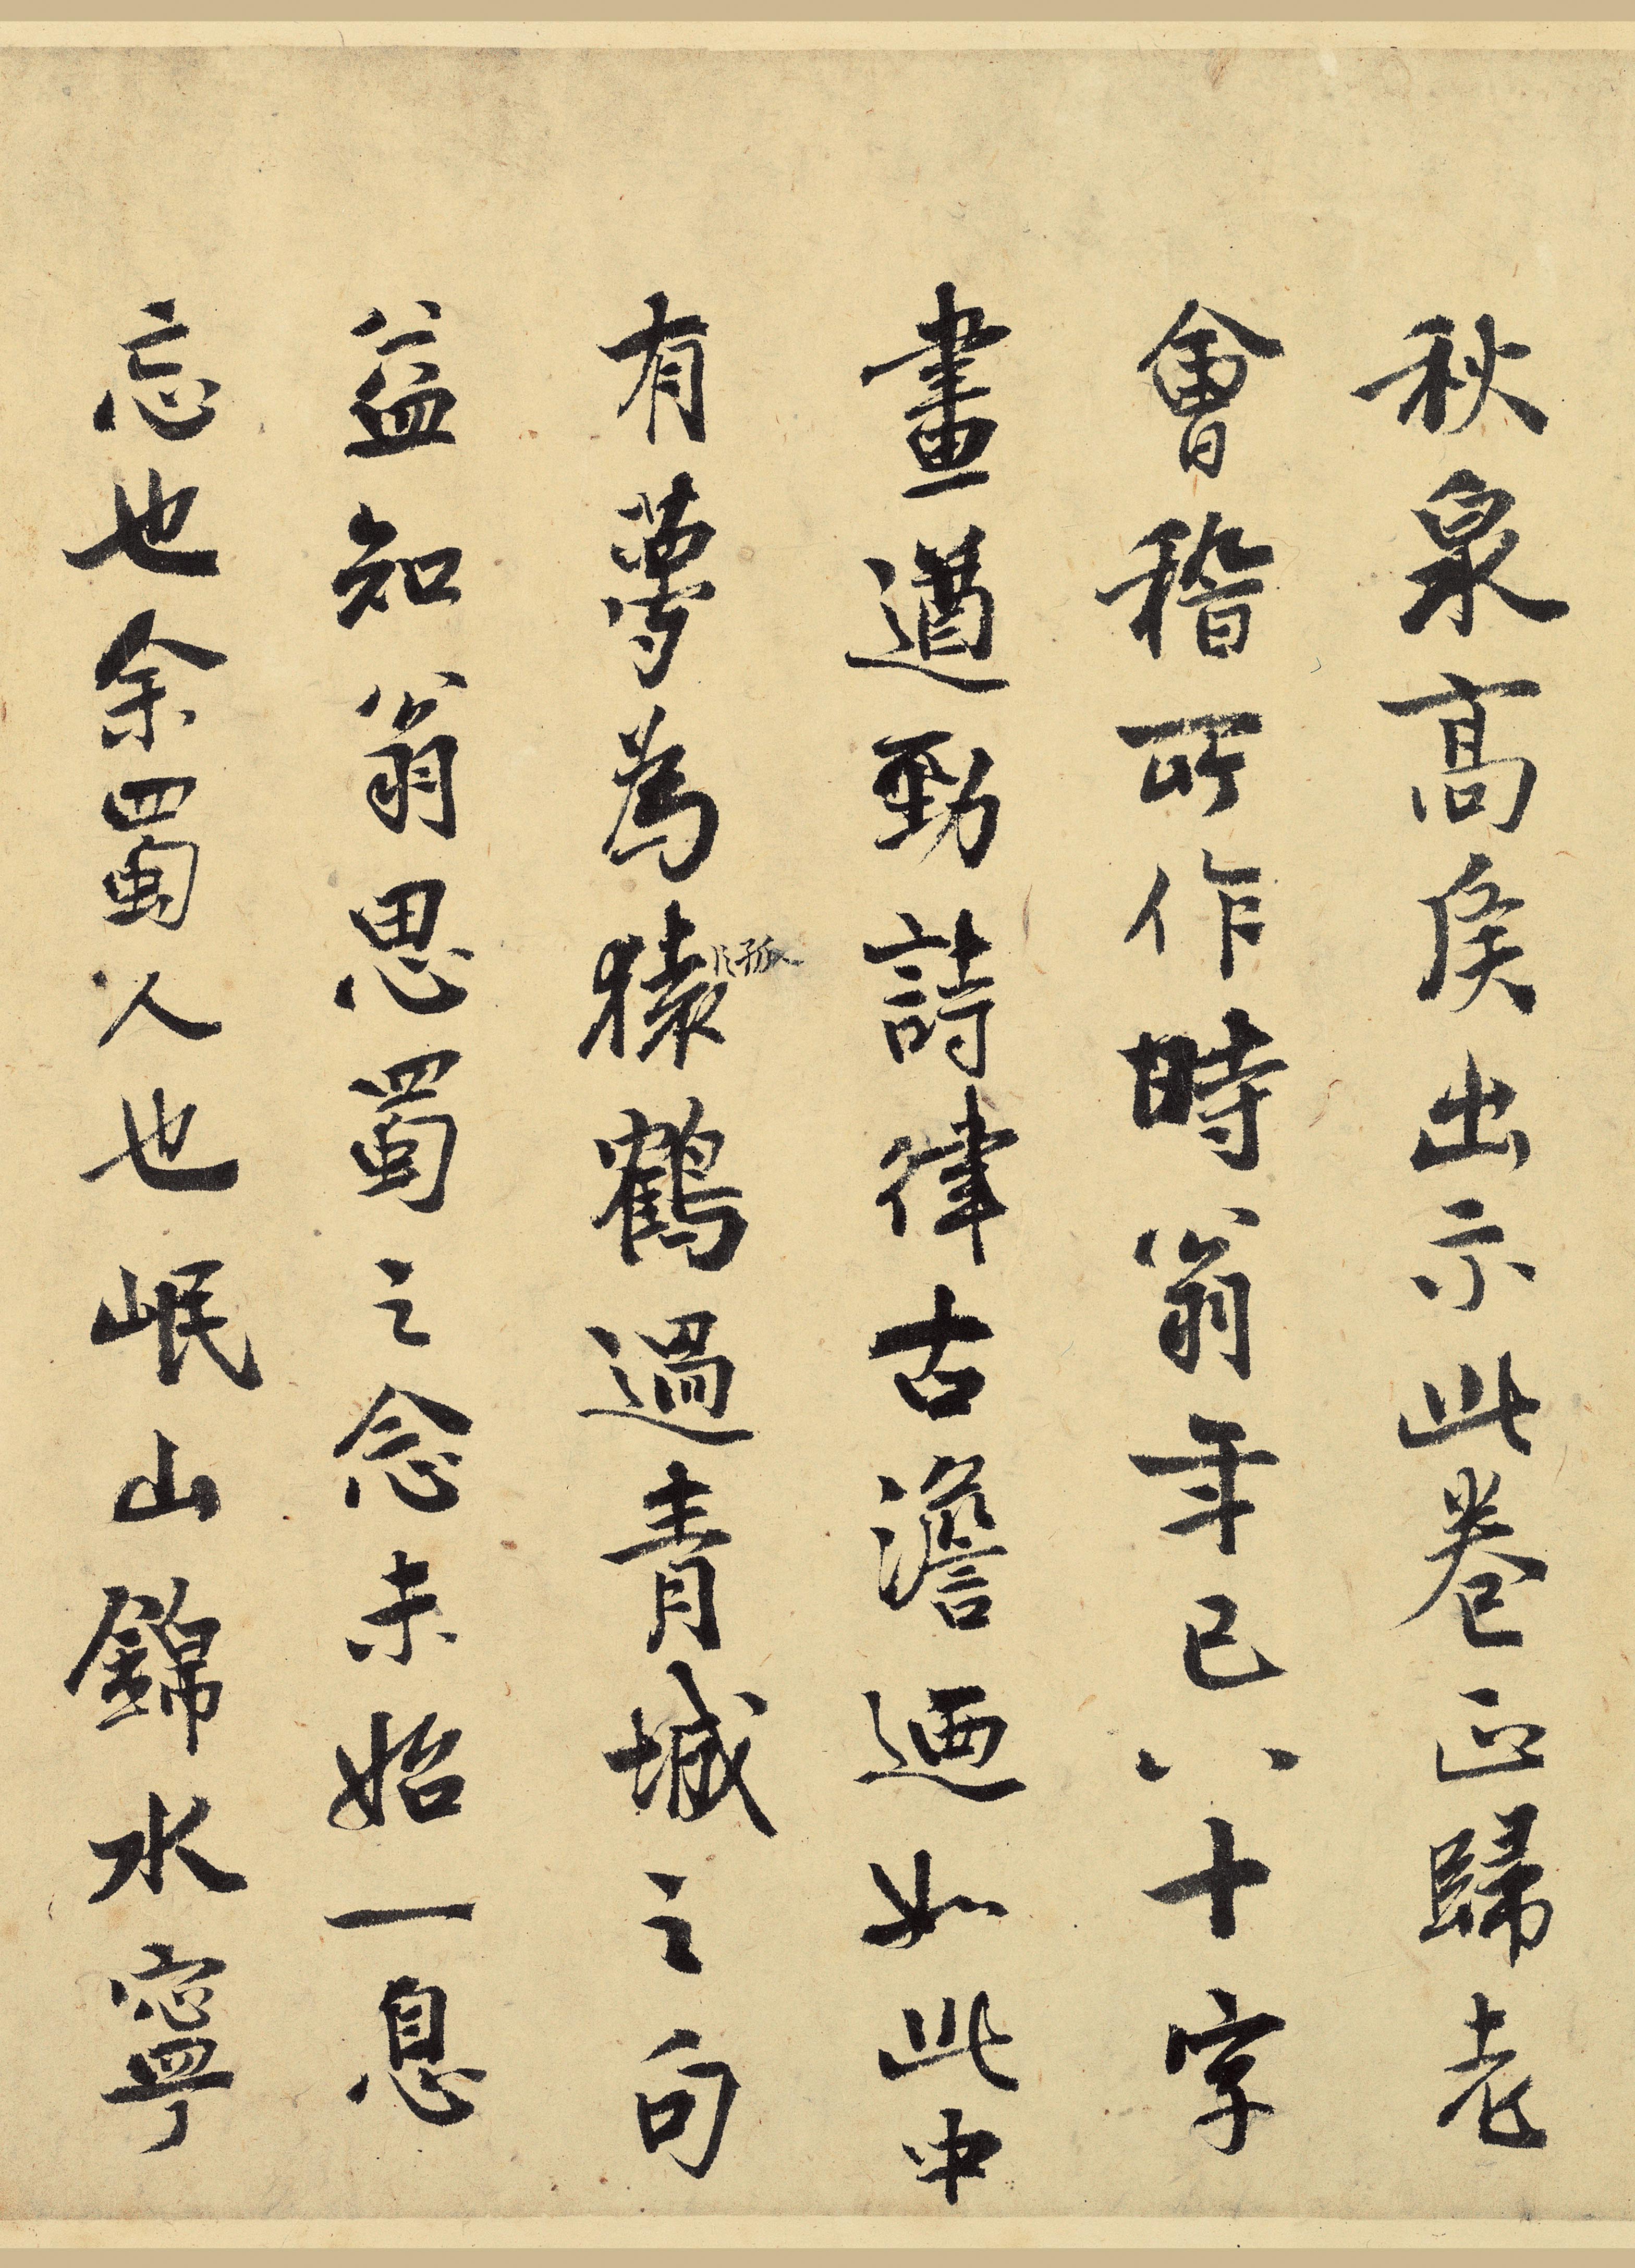 秋泉高侯出示此卷正歸老
會稽所作時翁年已八十字
畫遒勁詩律古澹迺如此中
有夢為猿鶴過青城之句
益知翁思蜀之念未始一息
忘也余蜀人也岷山錦水寧